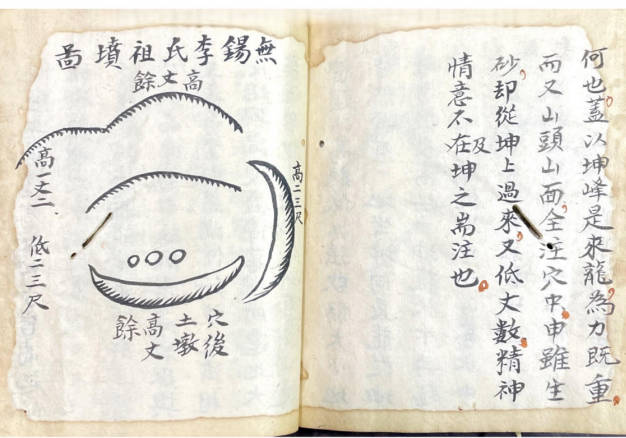 何也蓋以坤峰是來龍為力既重
而又山頭山面全注穴中申雖生
砂却從坤上過來又低丈數精神
情意不及在坤之耑注也
無錫李氏祖墳啚
高丈餘
高二三尺
高一丈二
低二三尺
穴後
土墩
高丈
餘